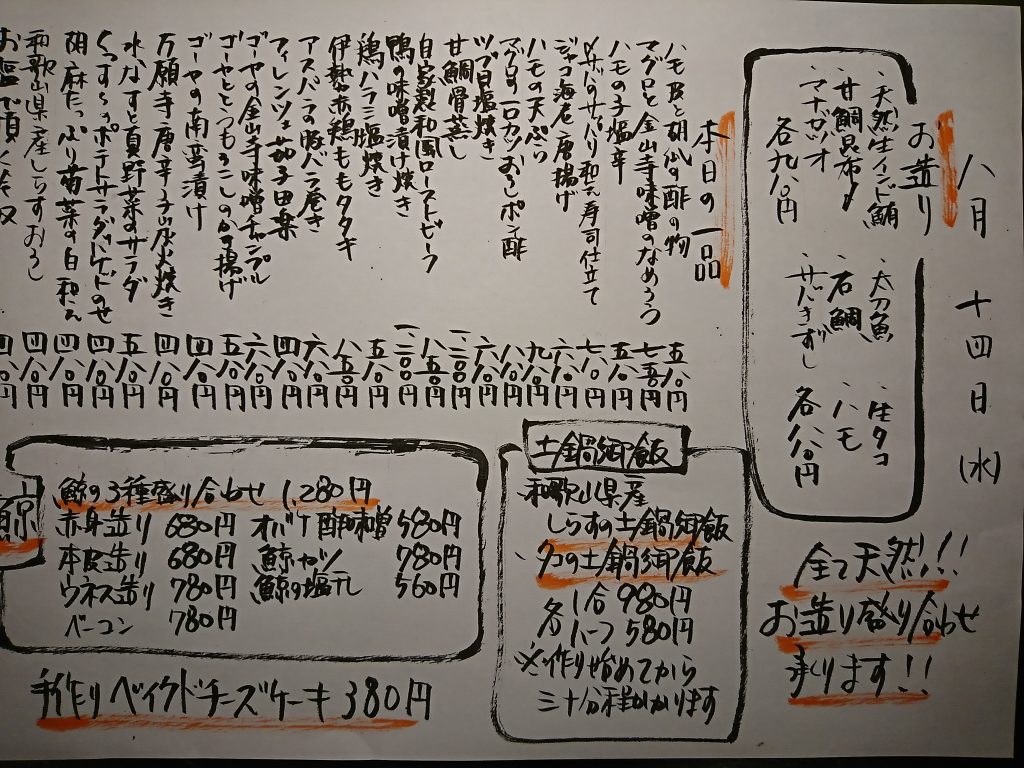 八月 十四日 (水)
お造り
・天然生インド鮪
・甘鯛昆布〆
・マナガツオ
各九八〇円
・太刀魚
・石鯛
・サバきずし
・生タコ
・ハモ
各八八〇円
全て天然!!
お造り盛り合わせ
承ります!!
本日の一品
ハモ皮と胡瓜の酢の物 五八〇円
マグロと金山寺味噌のなめろう 七五〇円
ハモの子塩辛 五八〇円
〆サバのサッパリ和え寿司仕立て 七八〇円
ジャコ海老唐揚げ 六八〇円
ハモの天ぷら 九八〇円
マグロの一口カツおろしポン酢 八八〇円
ツブ貝塩焼き 六八〇円
甘鯛骨蒸し 一、二〇〇円
自家製和風ローストビーフ 八五〇円
鴨の味噌漬け焼き 一、二〇〇円
鶏ハラミ塩焼き 五八〇円
伊勢赤鶏ももタタキ 八五〇円
アスパラの豚バラ巻き 六八〇円
フィレンツェ茄子田楽 四八〇円
ゴーヤの金山寺味噌チャンプル 六八〇円
ゴーヤととうもろこしのかき揚げ 五八〇円
ゴーヤの南蛮漬け 四八〇円
万願寺唐辛子炭火焼き 四八〇円
水なすと夏野菜のサラダ 五八〇円
くんすぺのポテトサラダバゲットのせ 四八〇円
胡麻たっぷり菊菜の白和え 四八〇円
和歌山県産しらすおろし 四八〇円
四八〇円
土鍋御飯
・和歌山県産
しらすの土鍋御飯
・タコの土鍋御飯
各 1合 980円
ハーフ 580円
※作り始めてから
三十分程かかります
鯨
鯨の3種盛り合わせ 1,280円
赤身造り 680円 オバケ酢味噌 580円
本皮造り 680円 鯨カツ 780円
ウネス造り 780円 鯨の塩干し 560円
ベーコン 780円
手作りベイクドチーズケーキ 380円